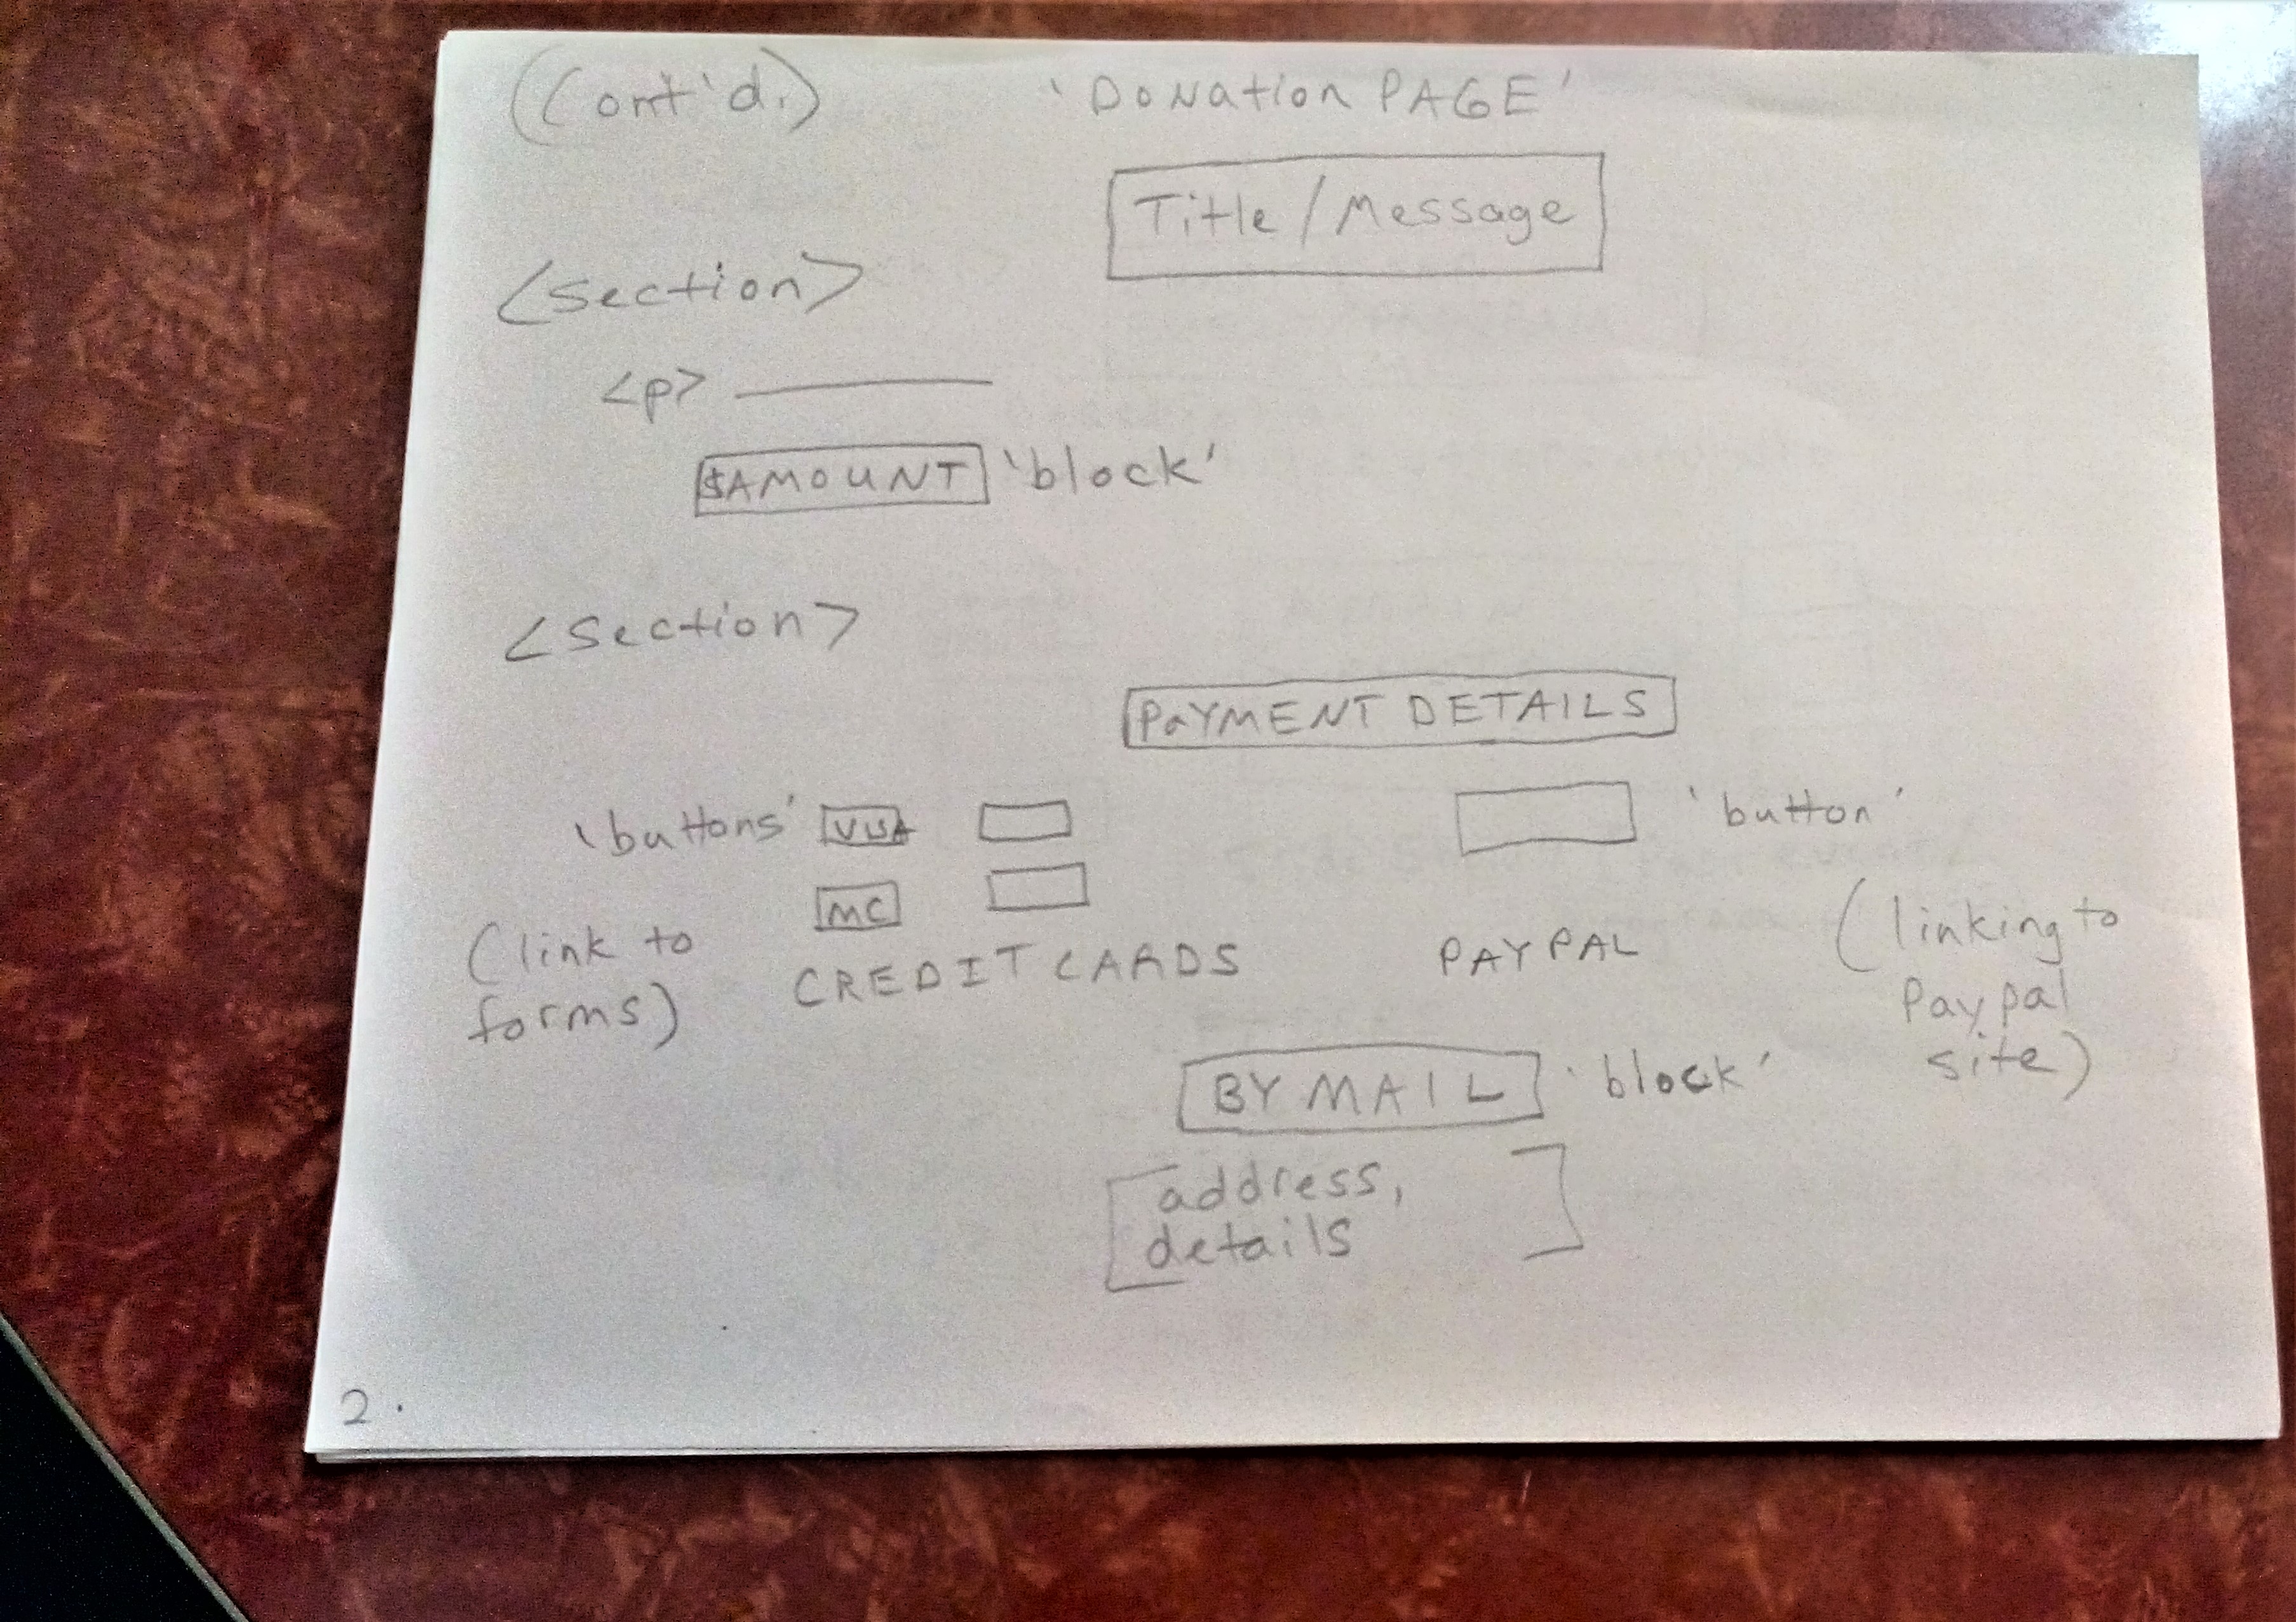 (Cont'd.) 'DONation PAGE'
Title/Message
<section>
<p>
$AMOUNT 'block'
<section>
PaYMENT DETAILS
'buttons' VISA 'button'
MC
(link to forms) CREDIT CARDS PAYPAL (linking to Paypal site)
BY MAIL 'block'
address,
details
2.